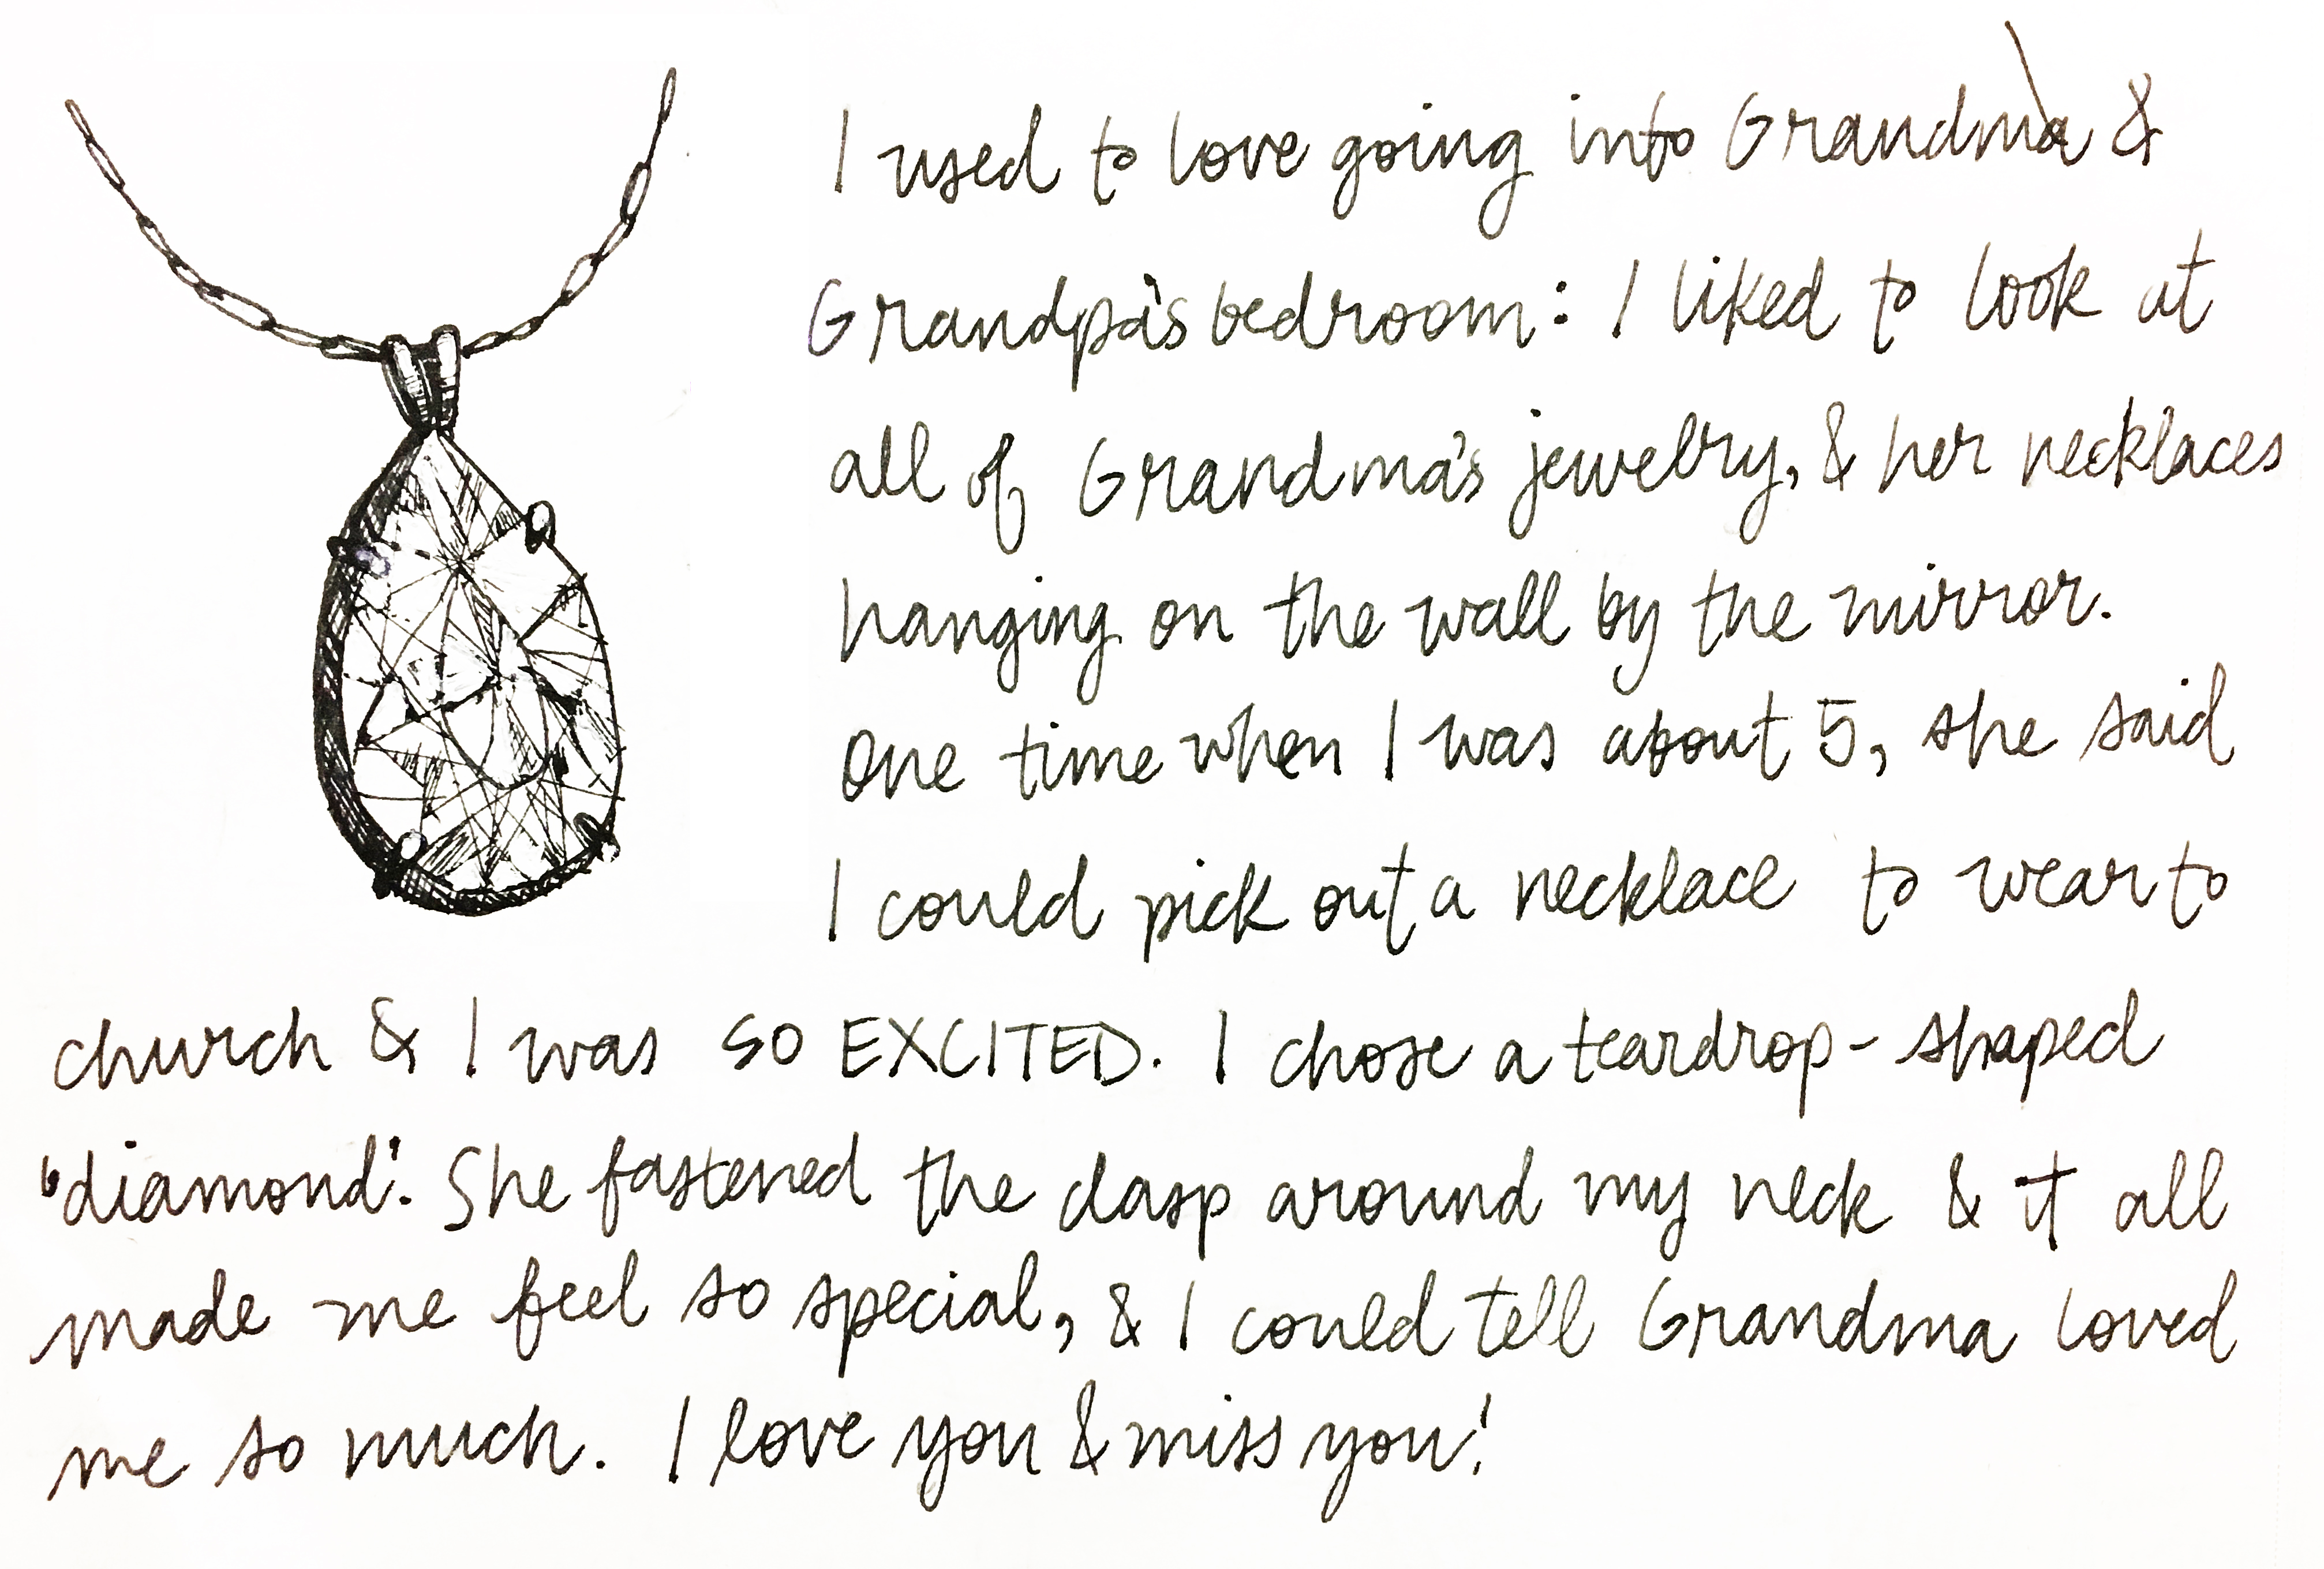 I used to love going into Grandma &
Grandpa's bedroom: I liked to look at
all of Grandma's jewelry, & her necklaces
hanging on the wall by the mirror.
One time when I was about 5, she said
I could pick out a necklace to wear to
church & I was SO EXCITED. I chose a teardrop-shaped
"diamond". She fastened the clasp around my neck & it all
made me feel so special, & I could tell Grandma loved
me so much. I love you & miss you!